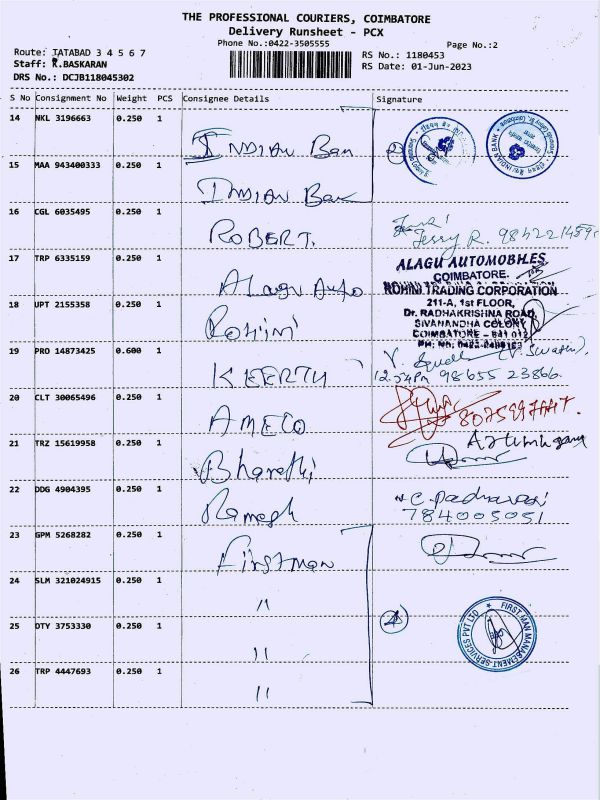 THE PROFESSIONAL COURIERS, COIMBATORE
Delivery Runsheet - PCX
Phone No.:0422-3505555
Page No.:2
Route: TATABAD 3 4 5 6 7
Staff: R.BASKARAN
DRS No.: DCJB118045302
RS No.: 1180453
RS Date: 01-Jun-2023
S No Consignment No Weight PCS Consignee Details Signature
14 NKL 3196663 0.250 1 INDIAN Ban
15 MAA 943400333 0.250 1 INDIAN Bak
16 CGL 6035495 0.250 1 ROBERT.
Jerry R.
17 TRP 6335159 0.250 1 Alagu Auto
ALAGU AUTOMOBILES
COIMBATORE.
18 UPT 2155358 0.250 1 Rohini
ROHINI TRADING CORPORATION
211-A, 1st FLOOR,
Dr. RADHAKRISHNA ROAD,
SIVANANDHA COLONY
COIMBATORE - 641 012
19 PRO 14873425 0.600 1 KEERTU
98655 23866.
20 CLT 30065496 0.250 1 AMECO
21 TRZ 15619958 0.250 1 Bharathi
22 DDG 4904395 0.250 1 Ramesh
784005051
23 GPM 5268282 0.250 1 Firstman
24 SLM 321024915 0.250 1 "
25 DTY 3753330 0.250 1 "
4
FIRST MAN MANAGEMENT SERVICES PVT LTD
26 TRP 4447693 0.250 1 "